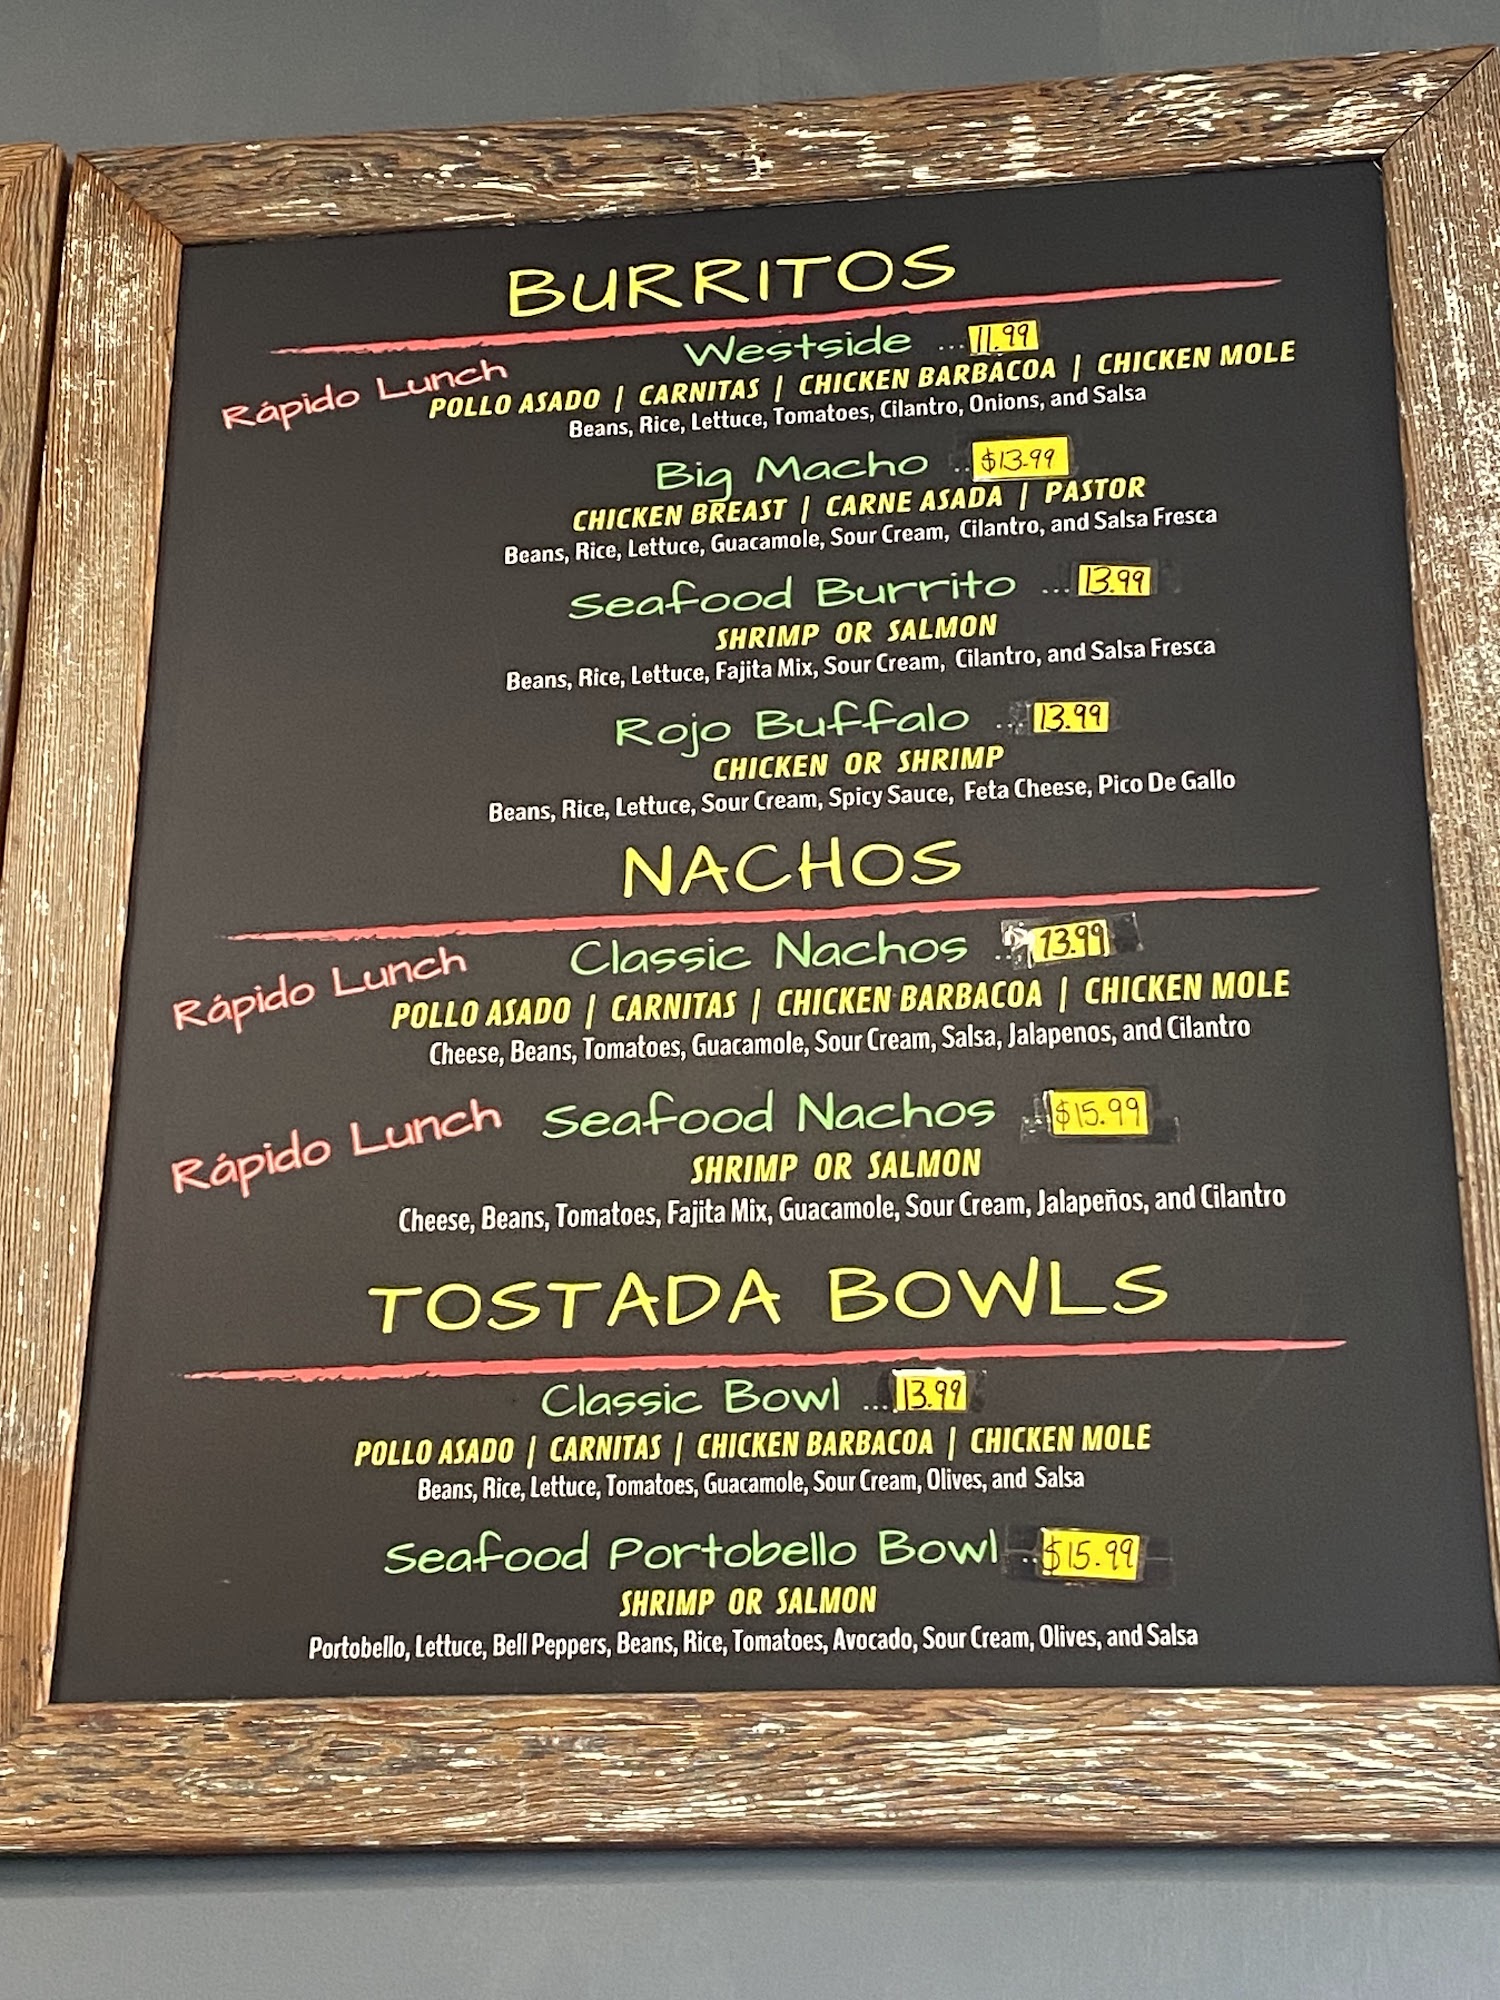 BURRITOS
Westside ...11.99
Rápido Lunch
POLLO ASADO | CARNITAS | CHICKEN BARBACOA | CHICKEN MOLE
Beans, Rice, Lettuce, Tomatoes, Cilantro, Onions, and Salsa
Big Macho ..$13.99
CHICKEN BREAST | CARNE ASADA | PASTOR
Beans, Rice, Lettuce, Guacamole, Sour Cream, Cilantro, and Salsa Fresca
Seafood Burrito ...13.99
SHRIMP OR SALMON
Beans, Rice, Lettuce, Fajita Mix, Sour Cream, Cilantro, and Salsa Fresca
Rojo Buffalo ...13.99
CHICKEN OR SHRIMP
Beans, Rice, Lettuce, Sour Cream, Spicy Sauce, Feta Cheese, Pico De Gallo
NACHOS
Classic Nachos ...13.99
Rápido Lunch
POLLO ASADO | CARNITAS | CHICKEN BARBACOA | CHICKEN MOLE
Cheese, Beans, Tomatoes, Guacamole, Sour Cream, Salsa, Jalapenos, and Cilantro
Rápido Lunch Seafood Nachos ...$15.99
SHRIMP OR SALMON
Cheese, Beans, Tomatoes, Fajita Mix, Guacamole, Sour Cream, Jalapeños, and Cilantro
TOSTADA BOWLS
Classic Bowl ...13.99
POLLO ASADO | CARNITAS | CHICKEN BARBACOA | CHICKEN MOLE
Beans, Rice, Lettuce, Tomatoes, Guacamole, Sour Cream, Olives, and Salsa
Seafood Portobello Bowl ..$15.99
SHRIMP OR SALMON
Portobello, Lettuce, Bell Peppers, Beans, Rice, Tomatoes, Avocado, Sour Cream, Olives, and Salsa